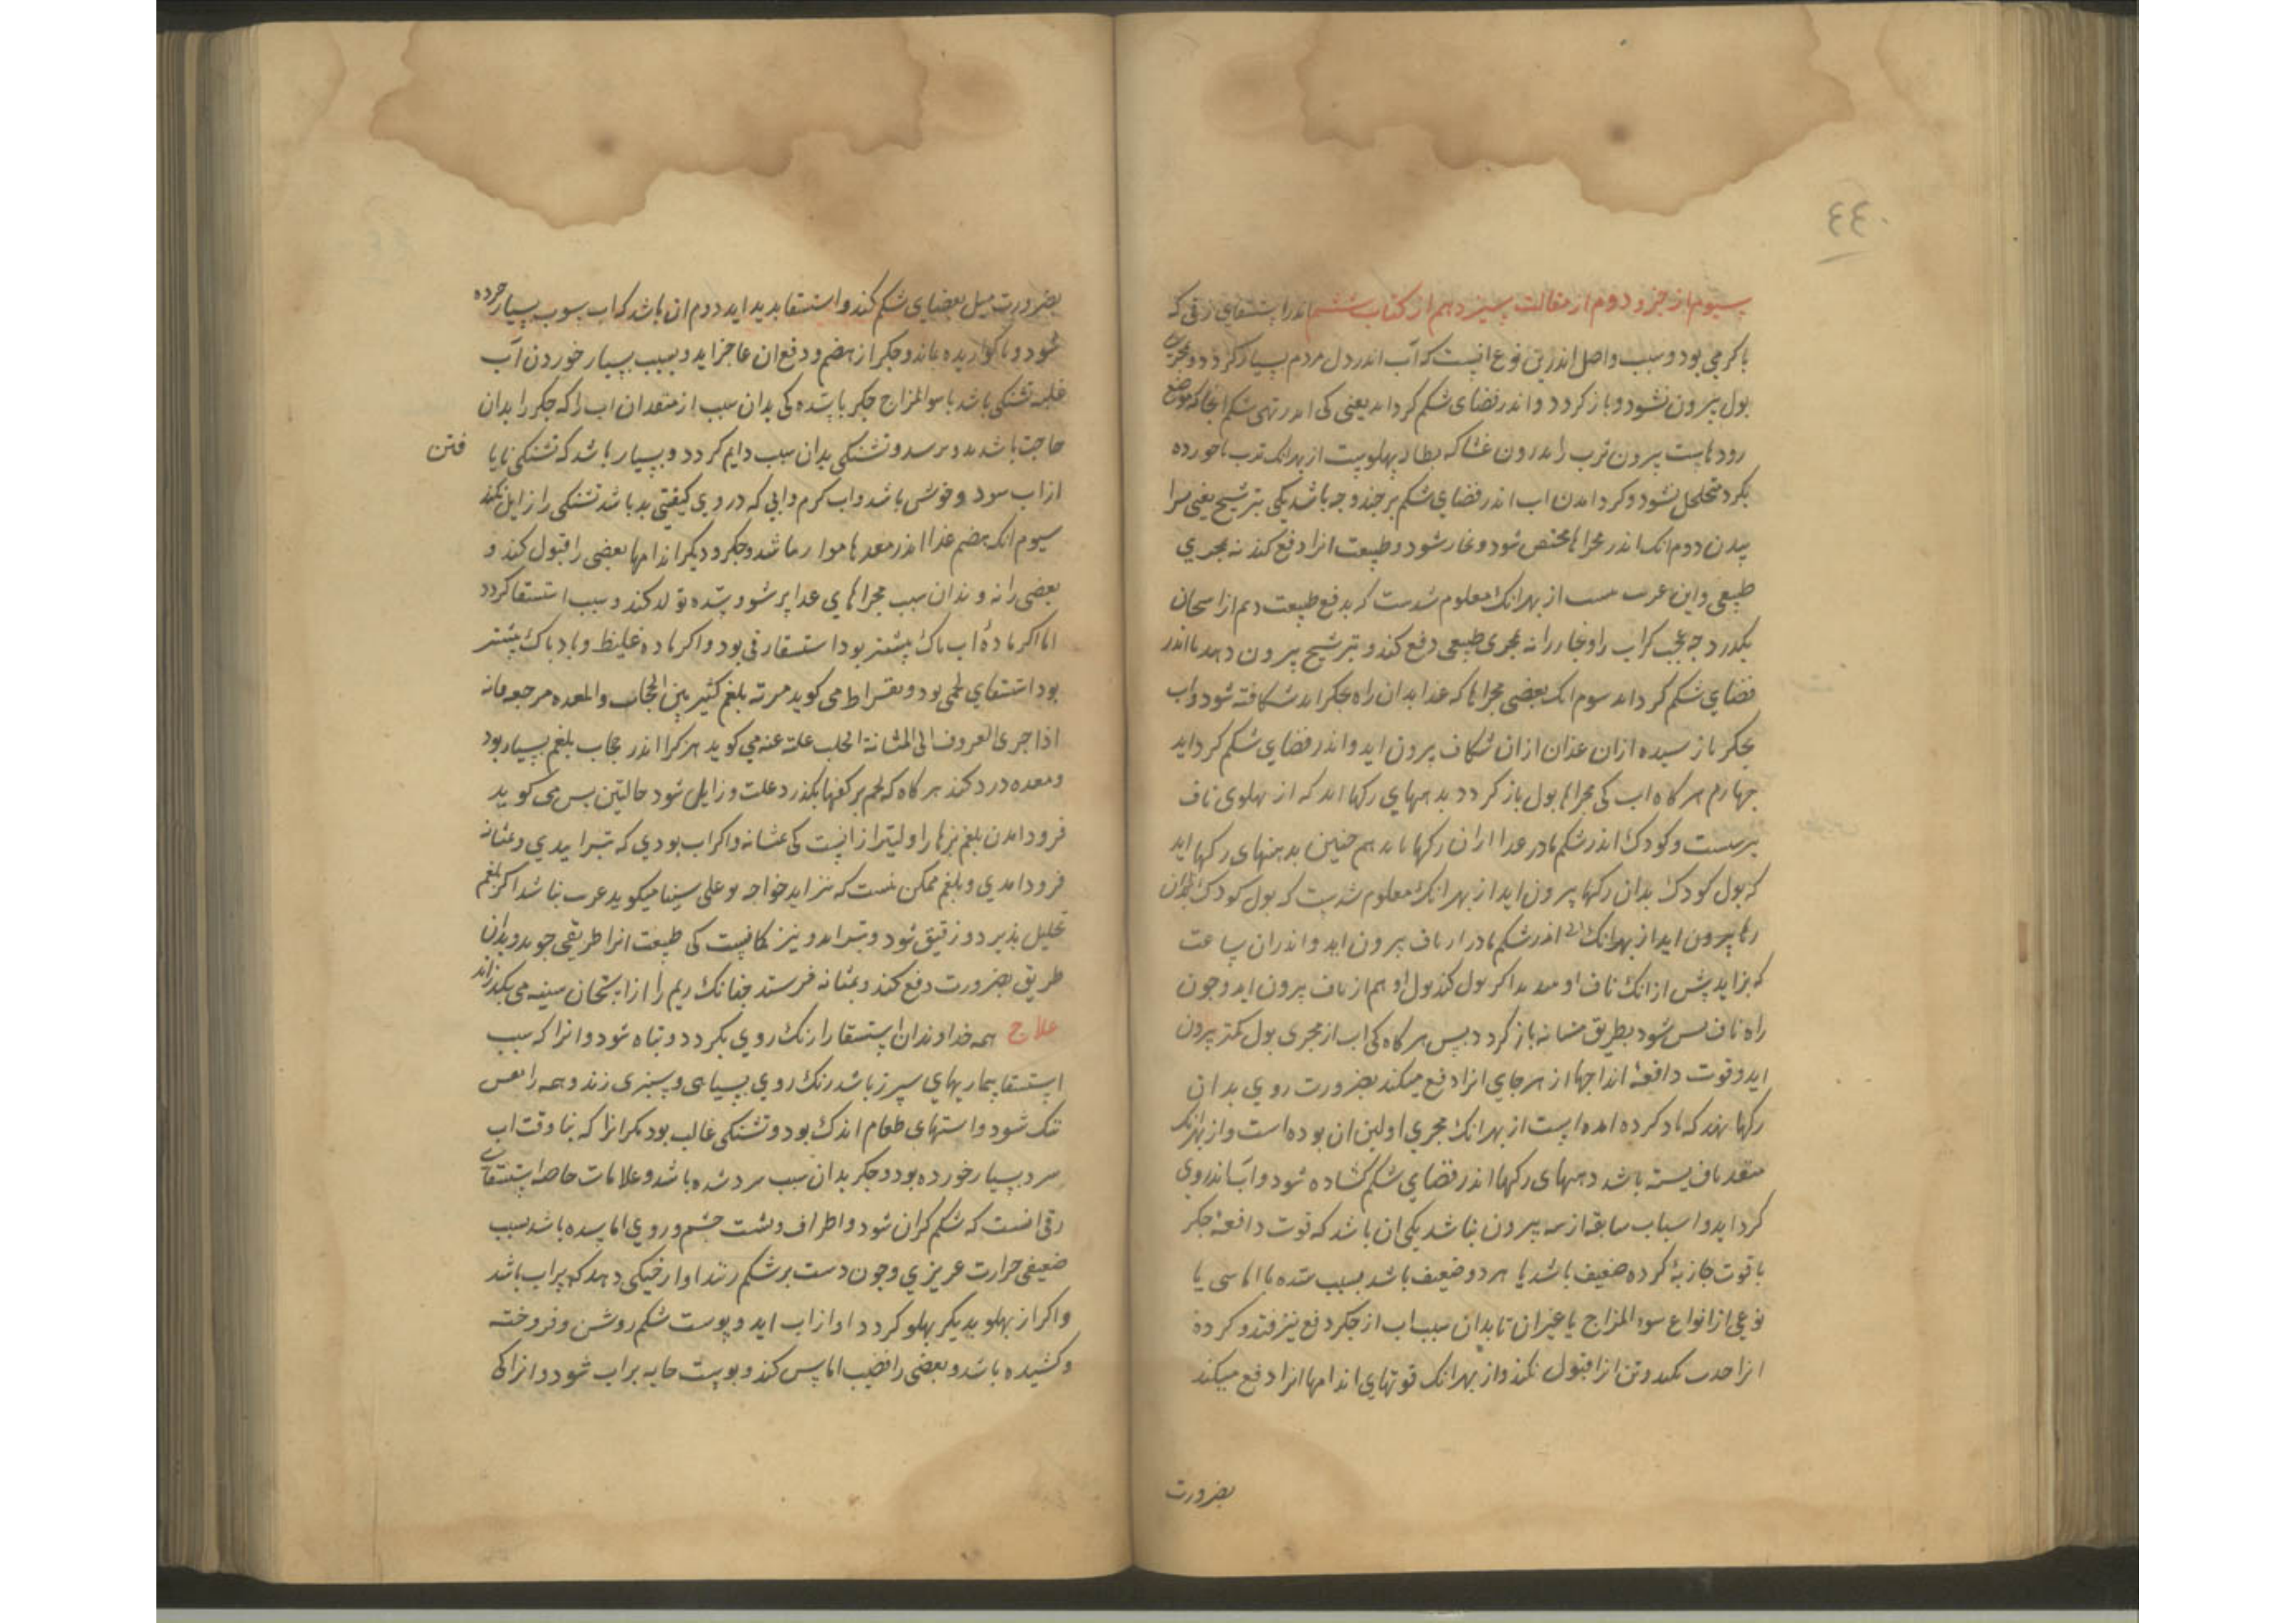 ٤٤٠
سیوم از جزو دوم از مقالت سیزدهم از کتاب ششم اندر استسقای زقی که
با کرمی بود و سبب واصل اندرین نوع انیست که آب اندر دل مردم بسیار کردد و مجری
بول بیرون نشود و باز کردد و اندر فضای شکم کرد اید یعنی کی اندر تهی شکم انجا که موضع
رودهاست بیرون ترب اندرون غشا که بهلوست از بهر انک ترب
بکرد متحلل نشود و کرد امدن اب اندر فضای شکم بر جند وجه باشد یکی بترشیح یعنی
دوم انک اندر مجراها محتقن شود و بخار شود و طبیعت انرا دفع کند نه بمجری
طبیعی و این از بهر انک معلوم شدست که بدفع طبیعت ریم از استخوان
بکذرد جه عجب کر اب را و بخار را نه بمجری طبیعی دفع کند و بترشیح بیرون دهد تا اندر
فضای شکم کرد اید سوم انک بعضی مجراها که غذا بدان راه بجکر اید شکافته شود و اب
بجکر باز سیده ازان شکاف بیرون اید و اندر فضای شکم کرد اید
جهارم هر کاه اب کی مجراها بول باز کردد بدهنهای رکها اید که از بهلوی ناف
برست و کودک اندر شکم مادر غذا ازان رکها یابد هم جنین بدهنهای رکها اید
که بول کودک بدان رکها بیرون اید از بهر انک معلوم شدست که بول کودک بدان
رکها بیرون اید از بهر انک اندر شکم مادر از ناف بیرون اید و اندران ساعت
که بزاید پیش ازانک ناف او ببرند اکر بول کند بول او هم از ناف بیرون اید و جون
راه ناف بس شود بطریق مثانه باز کردد بس هر کاه کی اب از مجری بول کمتر بیرون
اید و قوت دافعهٔ از هر جای انرا دفع میکند بضرورت روی بدان
رکها نهد که یاد کرده امده است از بهر انک مجری اولین ان بوده است و از بهر انک
منفذ ناف بسته باشد دهنهای رکها اندر فضای شکم کشاده شود و آب اندروی
کرد اید و اسباب سابقه از سه بیرون نباشد یکی ان باشد که قوت دافعهٔ جکر
یا قوت جاذبهٔ کرده ضعیف باشد یا هر دو ضعیف باشد بسبب سده یا اماسی یا
نوعی از انواع سوء المزاج یا غیر ان تا بدان سبب اب از جکر دفع نیزفتد و کرده
انرا جذب نکند و تن انرا قبول نکند و از بهر انک قوتهای اندامها انرا دفع میکند
بضرورت
بضرورت میل بفضای شکم کند و استسقا بدید اید دوم ان باشد که اب بسیار خورده
شود و ناکواریده بماند و جکر از هضم و دفع ان عاجز اید و سبب بسیار خوردن آب
غلبه تشنکی باشد یا سو المزاج جکر یا سده کی بدان سبب از منفذ ان اب را که جکر را بدان
حاجت باشد بدو نرسد و تشنکی بدان سبب دایم کردد و بسیار باشد که تشنکی نایا فتن
از اب سرد و خوش باشد و اب کرم و ابی که در وی کیفتی بد باشد تشنکی را زایل نکند
سیوم انک هضم غذا اندر معده ناهموار باشد و جکر و دیکر اندامها بعضی را قبول کند و
بعضی را نه و بدان سبب مجراهای غذا پر شود و سده تولد کند و سبب استسقا کردد
اما اکر مادهٔ اب ناک بیشتر بود استسقا زقی بود و اکر ماده غلیظ و باد ناک بیشتر
بود استسقای لحمی بود و بقراط می کوید من به بلغم کثیر بین الحجاب و المعده
اذا جری العروق الی المثانة انحلت علته عنه می کوید هر کرا اندر حجاب بلغم بسیار بود
و معده درد کند هر کاه که بلغم برکهها بکذرد علت زایل شود جالینوس می کوید
فرود امدن بلغم اولیتر ازانیست کی بمثانه و اکر اب بودی که بمثانه
فرود امدی و بلغم ممکن نیست که خواجه بوعلی سینا میکوید نباشد اکر بلغم
تحلیل بذیرد و رقیق شود و بتراید و نیز طبیعت انرا طریقی جوید و بدان
طریق بضرورت دفع کند و بمثانه فرستد جنانک ریم را از استخوان سینه می بکذراند
علاج همه خداوندان استسقا را رنک روی بکردد و تباه شود و انرا که سبب
استسقا بیماریهای سپرز باشد رنک روی بسیاهی و سبزی زند و همه را نفس
تنک شود و اشتهای طعام اندک بود و تشنکی غالب بود مکر انرا که بنا وقت اب
سرد بسیار خورده بود و جکر بدان سبب سرد شده باشد و علامات خاصه استسقای
زقی انست که شکم کران شود و اطراف و پشت جشم و روی اماسیده باشد بسبب
ضعیفی حرارت غریزی و جون دست بر شکم زنند اواز خیکی دهد که پر اب باشد
و اکر از بهلو بدیکر بهلو کردد اواز اب اید و پوست شکم روشن و فروخته
و کشیده باشد و بعضی را قضیب اماس کند و پوست خایه پر اب شود و انرا کی